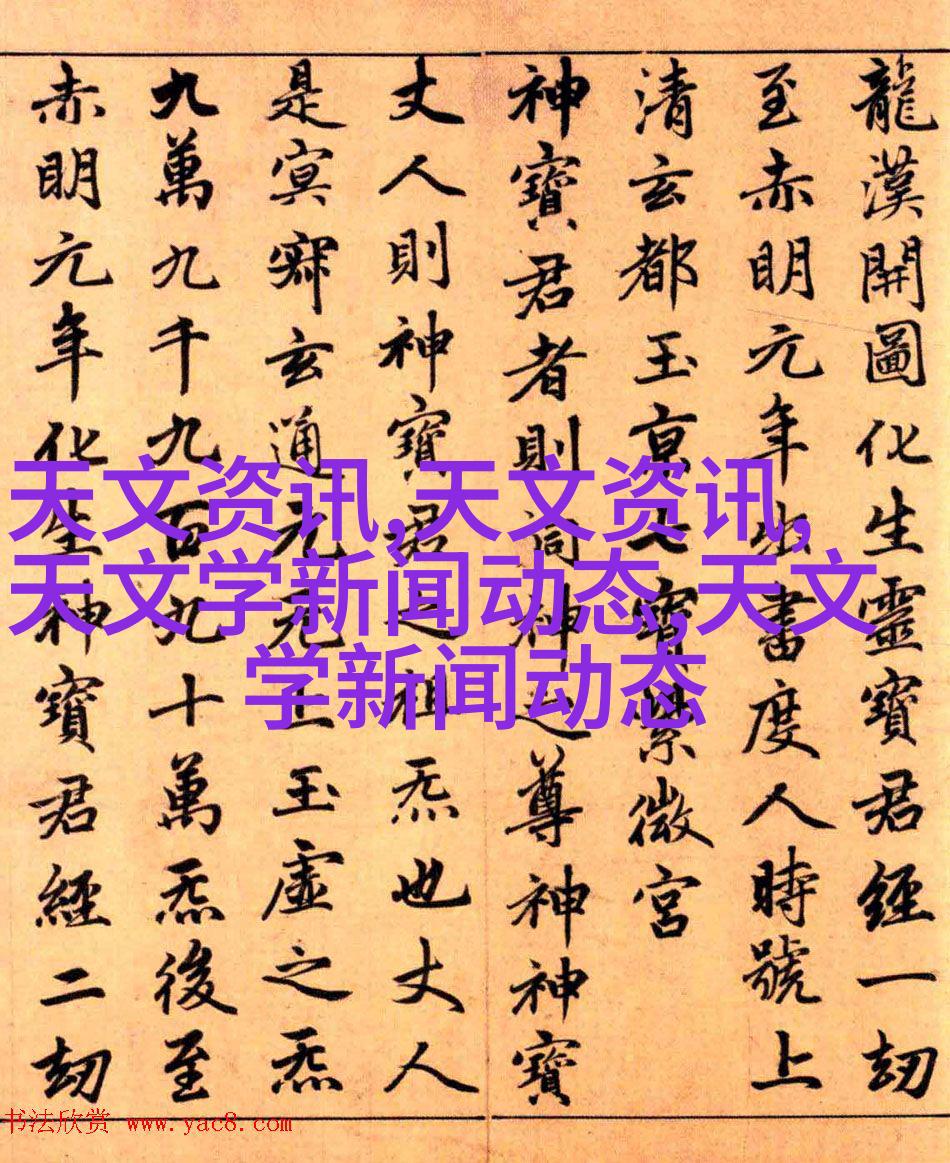 龍漢開圖化生靈寶君經一劫
至赤明元年出書度人時號上
清玄都玉京七寶紫微宮
神寶君者則洞神之尊神神寶
丈人則神寶君之祖炁也丈人
是冥寂玄通元无上玉虛之炁
九萬九千九百九十萬炁後至
赤明元年化生神寶君經二劫
天文资讯,天文资讯,
天文学新闻动态,天文
学新闻动态
书法欣赏 www.yac8.com